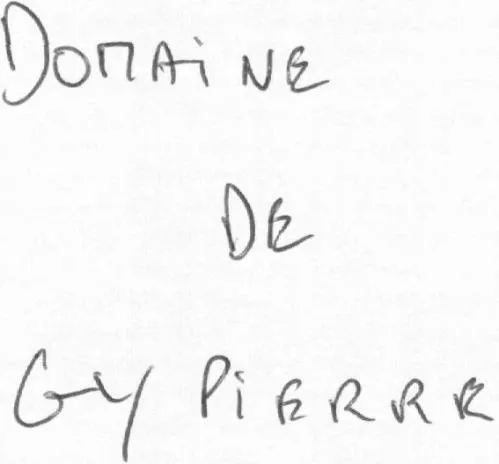 DOMAiNE
DE
GUY PiERRE